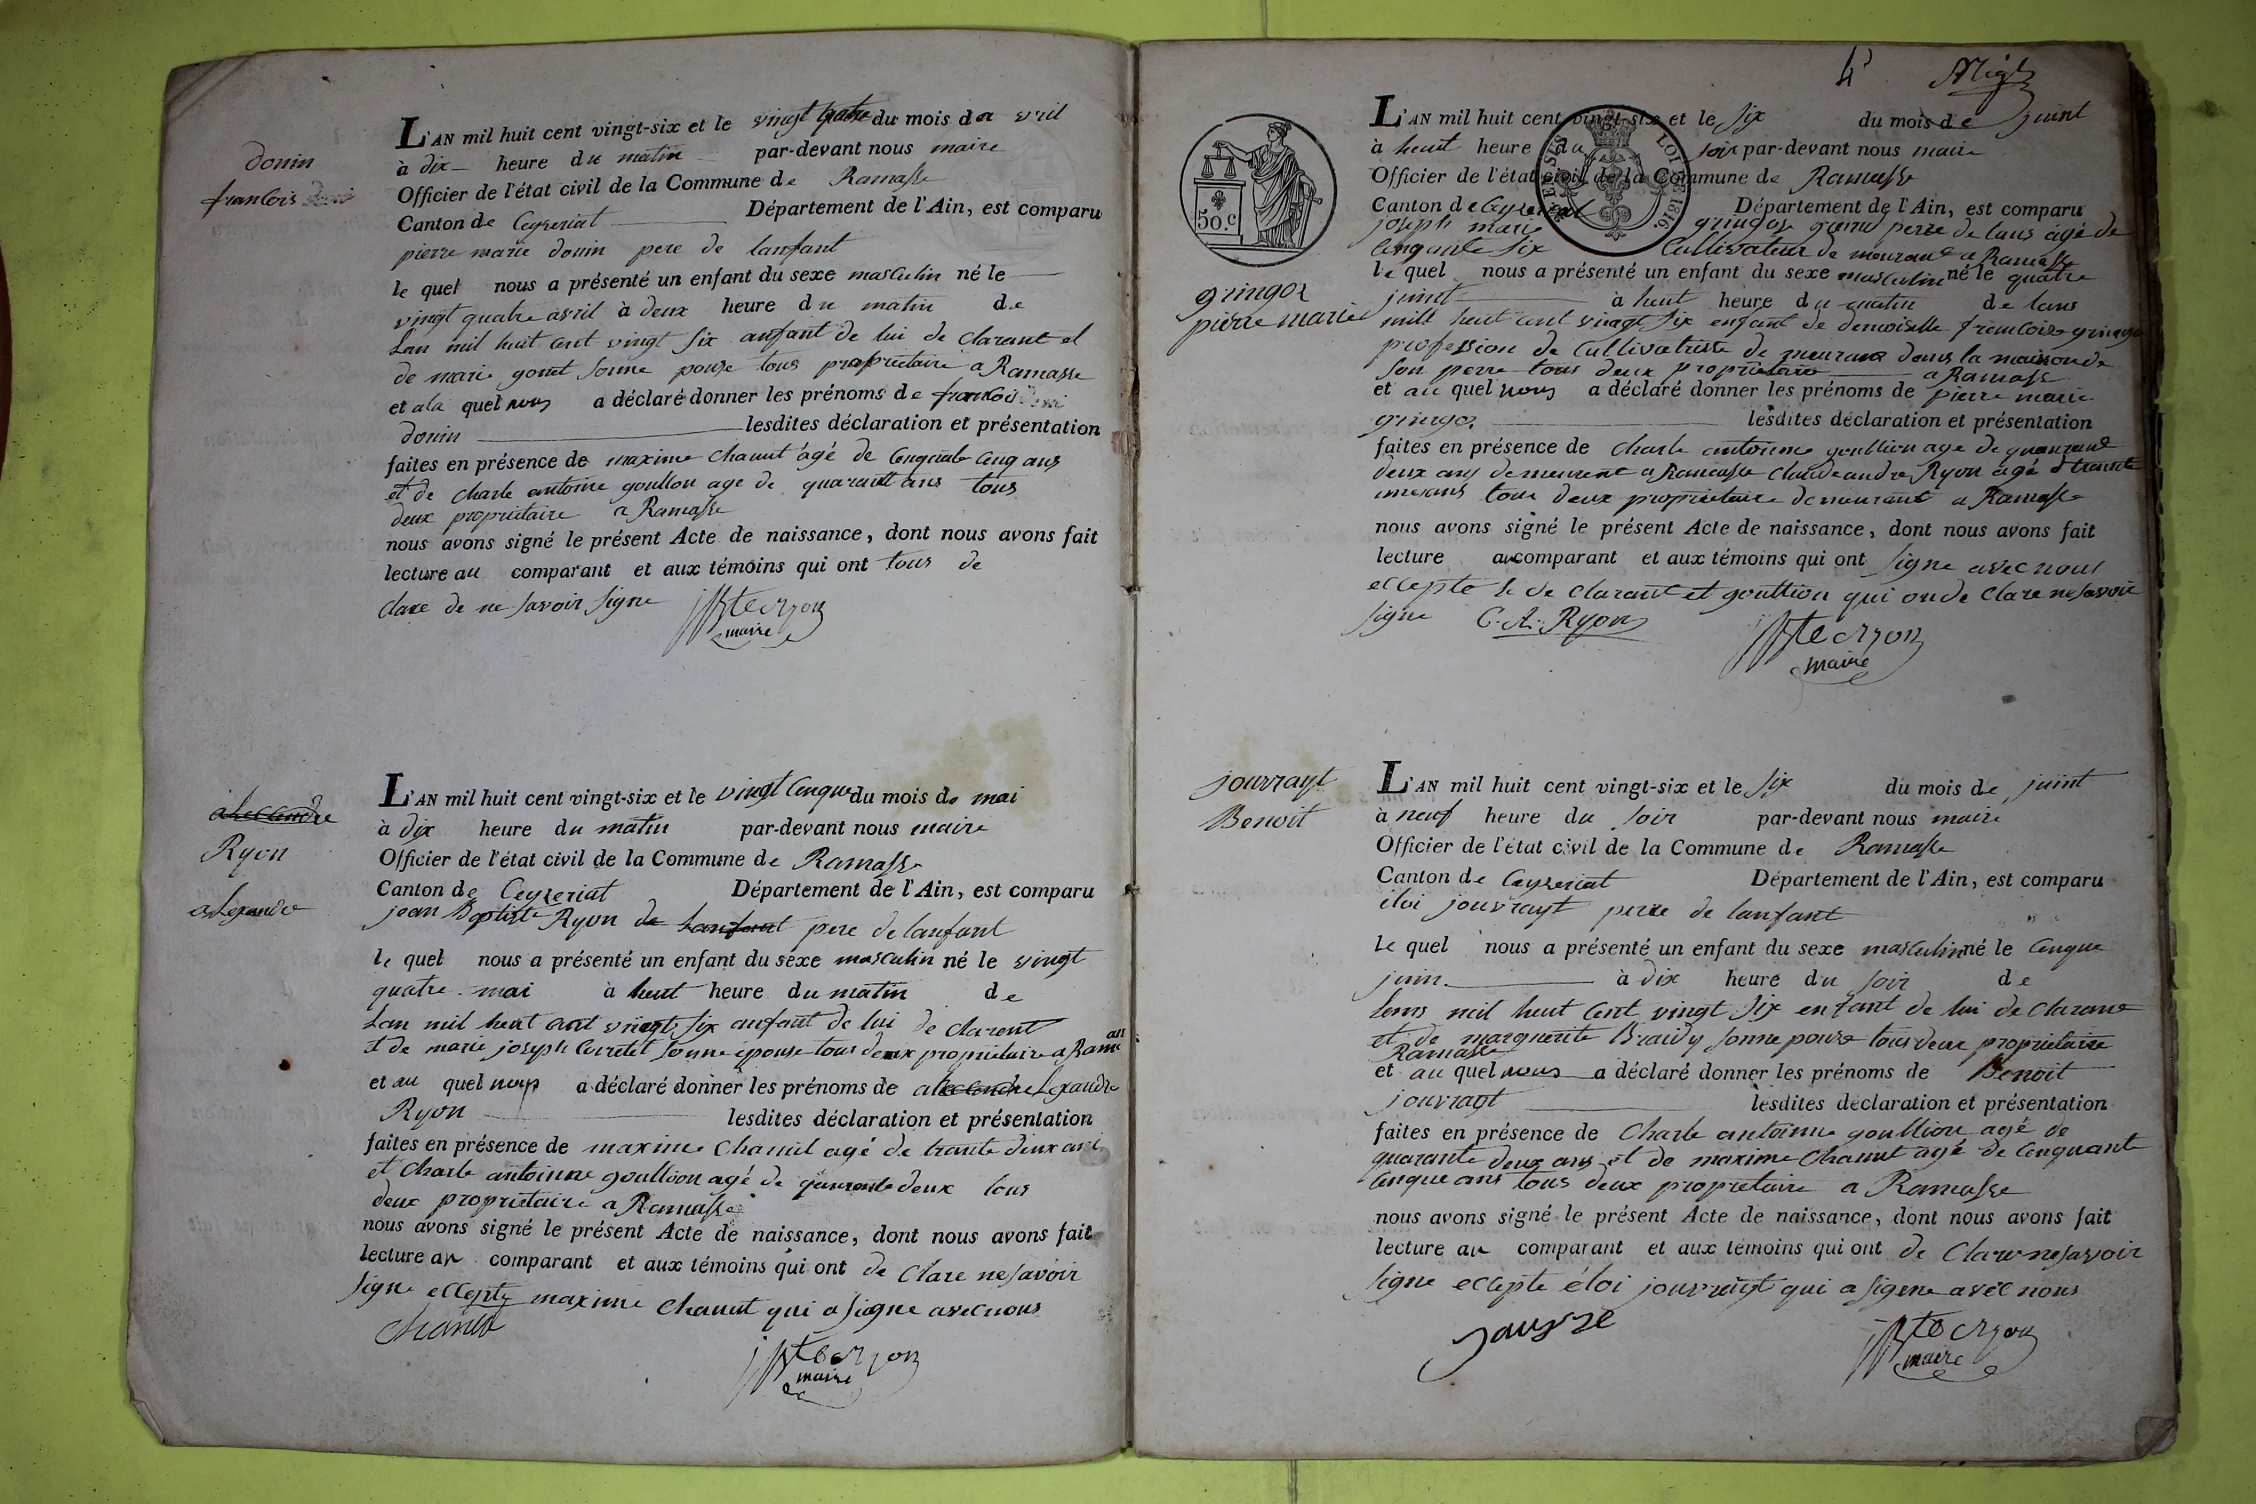 donin
francois
L'AN mil huit cent vingt-six et le vingt quatre du mois da vril
à dix heure du matin par-devant nous maire
Officier de l'état civil de la Commune de Ramasse
Canton de Ceyzeriat Département de l'Ain, est comparu
pierre marie donin pere de lanfant
le quel nous a présenté un enfant du sexe masculin né le
vingt quatre avril à deux heure du matin de
Lan mil huit cent vingt six anfant de lui de clarant et
de marie gonet sonne pouze tous proprietaire a Ramasse
et ala quel nous a déclaré donner les prénoms de francois
donin lesdites déclaration et présentation
faites en présence de maxime Chanut âgé de cenquante cenq ans
et de charle antoine goullon age de quarant ans tous
deux proprietaire a Ramasse
nous avons signé le présent Acte de naissance, dont nous avons fait
lecture au comparant et aux témoins qui ont tous de
clare de ne savoir signe
maire
alexandre
Ryon
alexandre
L'AN mil huit cent vingt-six et le vingt cenque du mois de mai
à dix heure du matin par-devant nous maire
Officier de l'état civil de la Commune de Ramasse
Canton de Ceyzeriat Département de l'Ain, est comparu
jean Baptiste Ryon de lanfant pere de lanfant
le quel nous a présenté un enfant du sexe masculin né le vingt
quatre mai à heut heure du matin de
Lan mil heut cent vingt six anfant de lui de clarent
et de marie joseph sonne épouse tous deux proprietaire a Rama
et au quel nous a déclaré donner les prénoms de alexandre
Ryon lesdites déclaration et présentation
faites en présence de maxime Chanut agé de trante deux ans
et Charle antoinne goullion agé de quarante deux tous
deux proprietaire a Ramasse
nous avons signé le présent Acte de naissance, dont nous avons fait
lecture au comparant et aux témoins qui ont de clare ne savoir
signe eccepte maxime Chanut qui a signe avec nous
Chanut
maire
4
L'AN mil huit cent vingt-six et le six du mois de juint
à heut heure du soir par-devant nous maire
Officier de l'état civil de la Commune de Ramasse
Canton de Ceyzeriat Département de l'Ain, est comparu
joseph marie gringoz grand perre de lans âgé de
cenqante six Cultivateur de meurant a Ramasse
50.c
LOI DE 1816
gringoz
pierre marie
le quel nous a présenté un enfant du sexe masculin né le quatre
juint à heut heure du matin de lans
mill heut cent vingt six enfant de demoiselle francoise gringoz
profession de Cultivatrisse de meurant dans la maison de
son perre tous deux proprietaire a Ramasse
et au quel nous a déclaré donner les prénoms de pierre marie
gringoz lesdites déclaration et présentation
faites en présence de charle antoinne goullion age de quarante
deux ans demeurent a Ramasse Claude andre Ryon âgé d trante
un ans tous deux proprietaire demeurant a Ramasse
nous avons signé le présent Acte de naissance, dont nous avons fait
lecture au comparant et aux témoins qui ont signe avec nous
eccepte le de clarant et goullion qui on de clare ne savoir
signe C. A. Ryon
maire
jouvrayt
Benoit
L'AN mil huit cent vingt-six et le six du mois de juint
à neuf heure du soir par-devant nous maire
Officier de l'état civil de la Commune de Ramasse
Canton de Ceyzeriat Département de l'Ain, est comparu
éloi jouvrayt perre de lanfant
le quel nous a présenté un enfant du sexe masculin né le cenque
juin à dix heure du soir de
Lans mil heut cent vingt six enfant de lui de clarant
et de marguerite Braidy sonne pouze tous deux proprietaire
Ramasse
et au quel nous a déclaré donner les prénoms de Benoit
jouvrayt lesdites déclaration et présentation
faites en présence de Charle antoinne goullion agé de
quarante deux ans et de maxime Chanut âgé de cenquante
cenque ans tous deux proprietaire a Ramasse
nous avons signé le présent Acte de naissance, dont nous avons fait
lecture au comparant et aux témoins qui ont de clare ne savoir
signe eccepte éloi jouvrayt qui a signe avec nous
maire